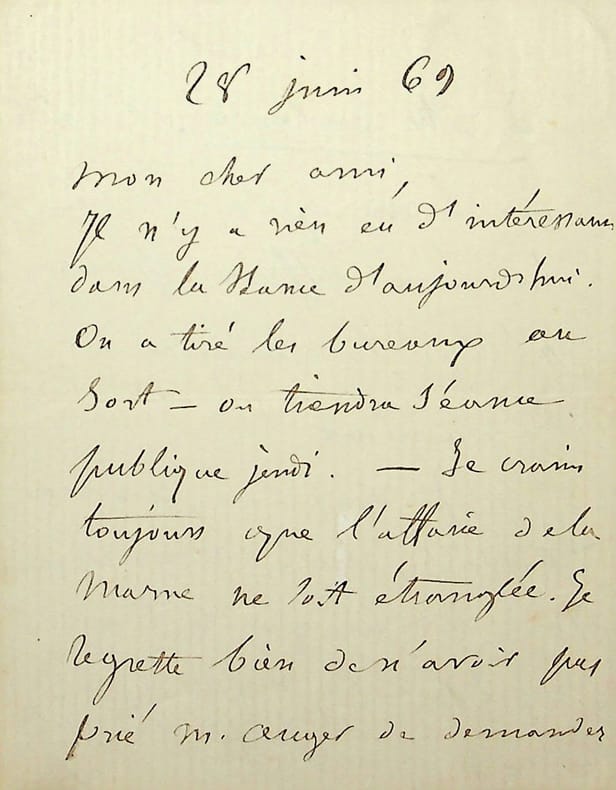 28 juin 69
Mon cher ami,
Il n'y a rien eu d'intéressant
dans la séance d'aujourd'hui.
On a tiré les bureaux au
sort — on tiendra séance
publique jeudi. — Je crains
toujours que l'affaire de la
Marne ne soit étranglée. Je
regrette bien de n'avoir pas
prié M. Auger de demander